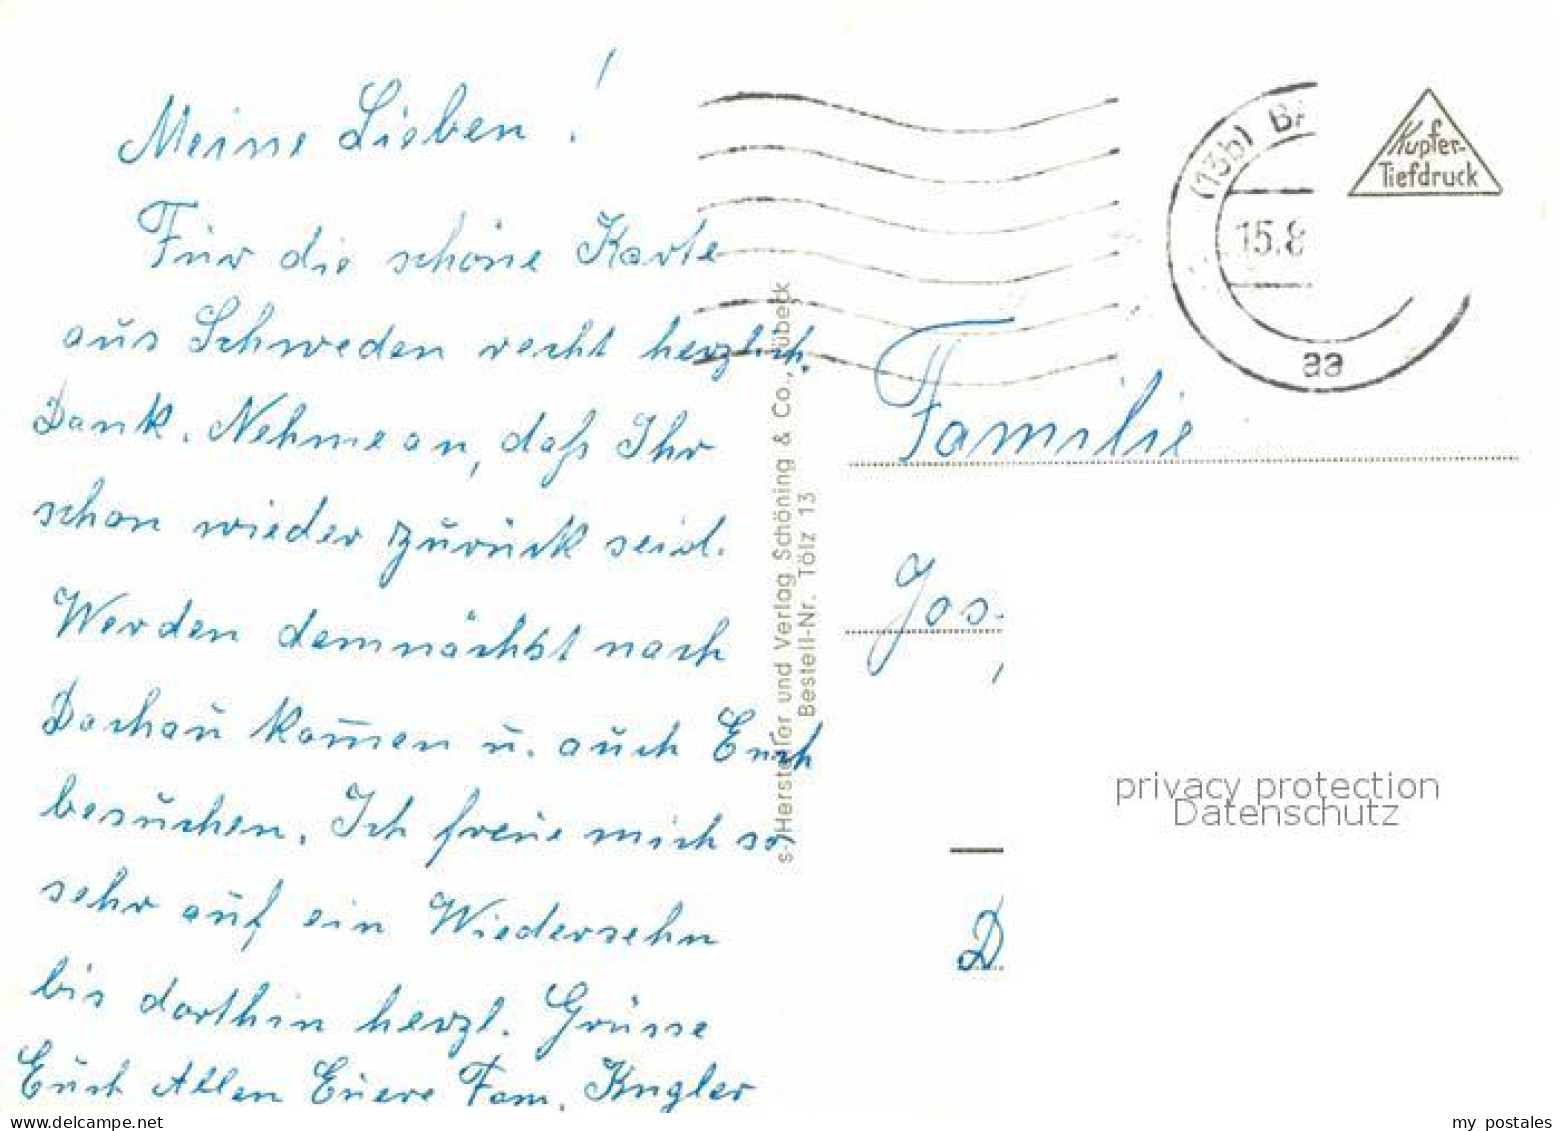 Meine Lieben!
Für die schöne Karte
aus Schweden recht herzlich.
Dank. Nehme an, daß Ihr
schon wieder zurück seid.
Werden demnächst nach
Dachau kom̄en u. auch Euch
besuchen. Ich freue mich so
sehr auf ein Wiedersehn
bis dorthin herzl. Grüsse
Euch Allen Euere Fam. Kugler
s-/Hersteller und Verlag Schöning & Co., Lübeck
Bestell-Nr. Tölz 13
(13b) BA
15.8
aa
Kupfer-
Tiefdruck
Familie
Jos
D
privacy protection
Datenschutz
my postales